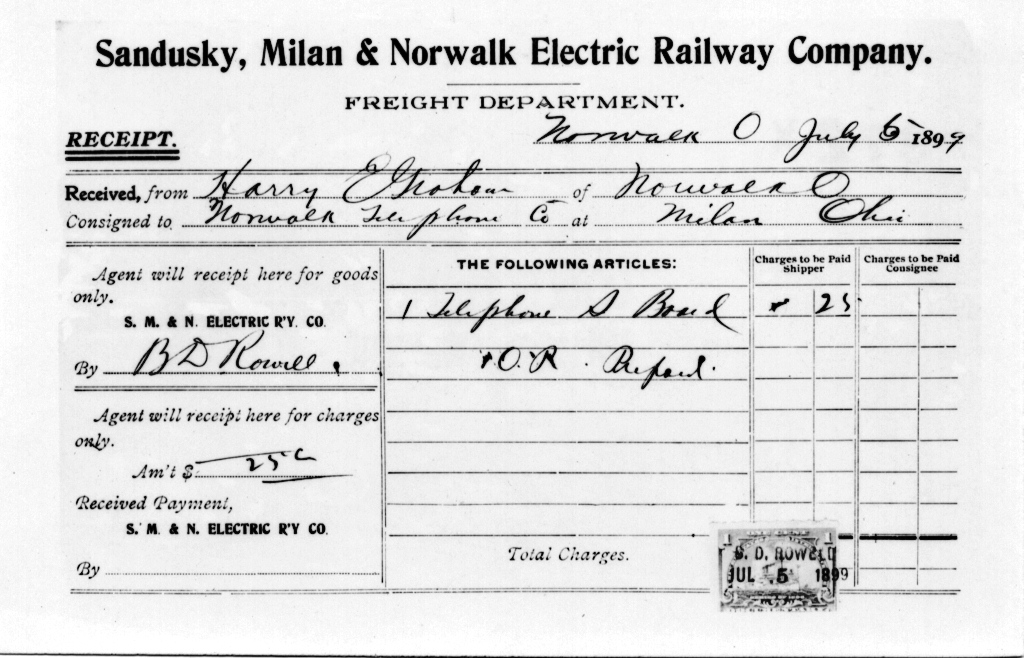 Sandusky, Milan & Norwalk Electric Railway Company.
FREIGHT DEPARTMENT.
RECEIPT.
Norwalk O July 5 1899
Received, from Harry E Graham of Norwalk O
Consigned to Norwalk Telephone Co at Milan Ohio
Agent will receipt here for goods only.
S. M. & N. ELECTRIC R'Y. CO.
By B D Rowell.
Agent will receipt here for charges only.
Am't $ 25c
Received Payment,
S. M. & N. ELECTRIC R'Y CO.
By
THE FOLLOWING ARTICLES:
Charges to be Paid Shipper
Charges to be Paid Consignee
1 Telephone S Board 25
O.R. Prepaid.
Total Charges.
1 1
D. ROWELL
JUL 5 1899